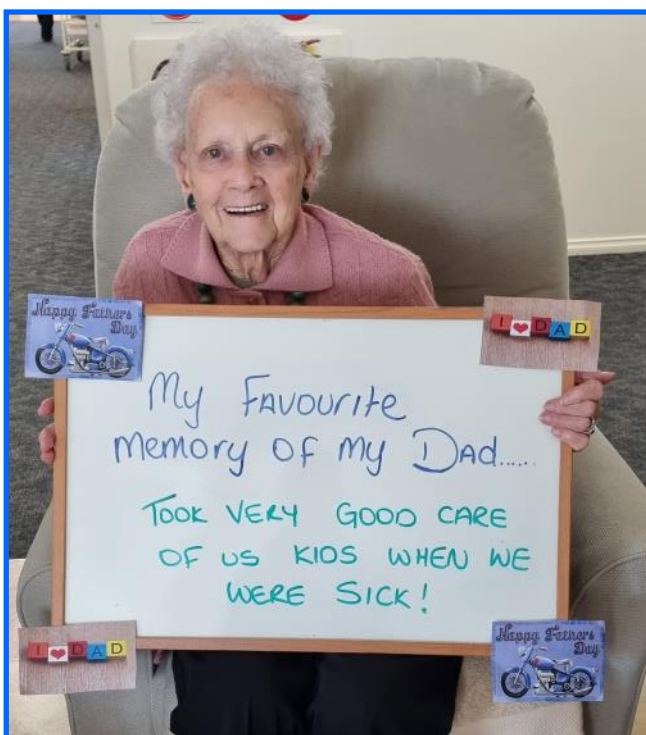 Happy Fathers
Day
I ❤ DAD
My Favourite
memory of my Dad......
TOOK VERY GOOD CARE
OF US KIDS WHEN WE
WERE SICK!
I ❤ DAD
Happy Fathers
Day